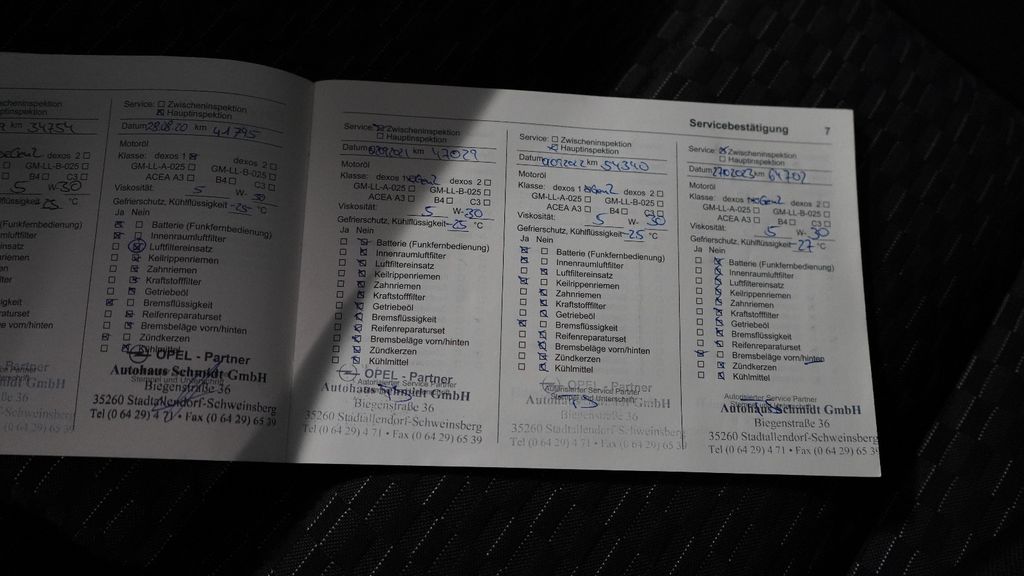 scheninspektion
ptinspektion
km 34754
dexos 2 □
GM-LL-B-025 □
B4 □ C3 □
5 W- 30
lüssigkeit -25 °C
umluftfilter
tereinsatz
riemen
iemen
offilter
eöl
sigkeit
araturset
ge vorn/hinten
en
Partner
midt GmbH
ße 36
Schweinsberg
Fax (0 64 29) 65 39
Service: □ Zwischeninspektion
☒ Hauptinspektion
Datum 28.08.20 km 41795
Motoröl
Klasse: dexos 1 ☒ dexos 2 □
GM-LL-A-025 □ GM-LL-B-025 □
ACEA A3 □ B4 □ C3 □
Viskosität: 5 W- 30
Gefrierschutz, Kühlflüssigkeit -25 °C
Ja Nein
Batterie (Funkfernbedienung)
Innenraumluftfilter
Luftfiltereinsatz
Keilrippenriemen
Zahnriemen
Kraftstofffilter
Getriebeöl
Bremsflüssigkeit
Reifenreparaturset
Bremsbeläge vorn/hinten
Zündkerzen
Kühlmittel
OPEL - Partner
Autohaus Schmidt GmbH
Biegenstraße 36
35260 Stadtallendorf-Schweinsberg
Tel (0 64 29) 4 71 • Fax (0 64 29) 65 39
Service: ☒ Zwischeninspektion
□ Hauptinspektion
Datum 2021 km 47029
Motoröl
Klasse: dexos 1 Gen2 dexos 2 □
GM-LL-A-025 □ GM-LL-B-025 □
ACEA A3 □ B4 □ C3 □
Viskosität: 5 W- 30
Gefrierschutz, Kühlflüssigkeit -25 °C
Ja Nein
Batterie (Funkfernbedienung)
Innenraumluftfilter
Luftfiltereinsatz
Keilrippenriemen
Zahnriemen
Kraftstofffilter
Getriebeöl
Bremsflüssigkeit
Reifenreparaturset
Bremsbeläge vorn/hinten
Zündkerzen
Kühlmittel
OPEL - Partner
Autorisierter Service Partner
Autohaus Schmidt GmbH
Biegenstraße 36
35260 Stadtallendorf-Schweinsberg
Tel (0 64 29) 4 71 • Fax (0 64 29) 65 39
Servicebestätigung 7
Service: □ Zwischeninspektion
☒ Hauptinspektion
Datum 2022 km 54340
Motoröl
Klasse: dexos 1 Gen2 dexos 2 □
GM-LL-A-025 □ GM-LL-B-025 □
ACEA A3 □ B4 □ C3 □
Viskosität: 5 W- 30
Gefrierschutz, Kühlflüssigkeit -25 °C
Ja Nein
Batterie (Funkfernbedienung)
Innenraumluftfilter
Luftfiltereinsatz
Keilrippenriemen
Zahnriemen
Kraftstofffilter
Getriebeöl
Bremsflüssigkeit
Reifenreparaturset
Bremsbeläge vorn/hinten
Zündkerzen
Kühlmittel
OPEL - Partner
Autorisierter Service Partner
Stempel und Unterschrift
Autohaus Schmidt GmbH
Biegenstraße 36
35260 Stadtallendorf-Schweinsberg
Tel (0 64 29) 4 71 • Fax (0 64 29) 65 39
Service: ☒ Zwischeninspektion
□ Hauptinspektion
Datum 2702023 km 64702
Motoröl
Klasse: dexos 1 Gen2 dexos 2 □
GM-LL-A-025 □ GM-LL-B-025 □
ACEA A3 □ B4 □ C3 □
Viskosität: 5 W- 30
Gefrierschutz, Kühlflüssigkeit -27 °C
Ja Nein
Batterie (Funkfernbedienung)
Innenraumluftfilter
Luftfiltereinsatz
Keilrippenriemen
Zahnriemen
Kraftstofffilter
Getriebeöl
Bremsflüssigkeit
Reifenreparaturset
Bremsbeläge vorn/hinten
Zündkerzen
Kühlmittel
Autorisierter Service Partner
Autohaus Schmidt GmbH
Biegenstraße 36
35260 Stadtallendorf-Schweinsberg
Tel (0 64 29) 4 71 • Fax (0 64 29) 65 39